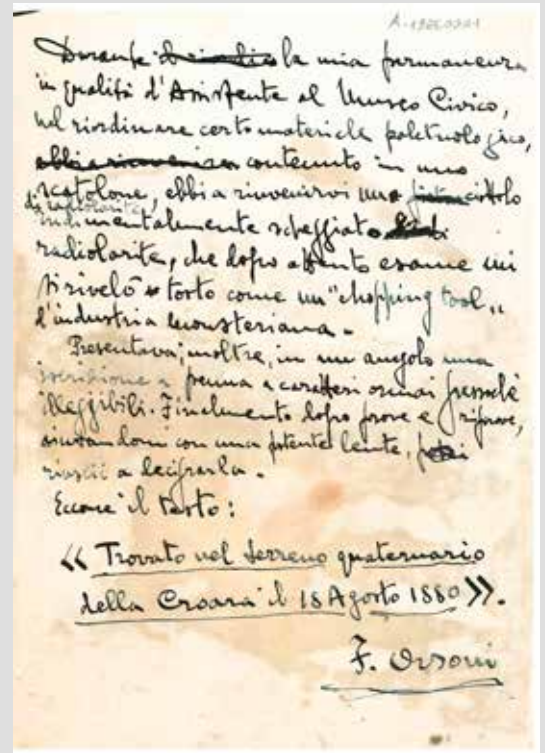 Durante la mia permanenza
in qualità d'Assistente al Museo Civico,
nel riordinare certo materiale paletnologico,
contenuto in uno
scatolone, ebbi a rinvenirvi uno ciottolo
di radiolarite
rudimentalmente scheggiato di
radiolarite, che dopo attento esame mi
si rivelò tosto come un "chopping tool„
d'industria mousteriana.
Presentava, inoltre, in un angolo una
iscrizione a penna a caratteri ormai pressochè
illeggibili. Finalmente dopo prove e riprove,
aiutandomi con una potente lente,
riuscii a decifrarla.
Eccone il testo:
« Trovato nel terreno quaternario
della Croara il 18 Agosto 1880 ».
F. Orsoni